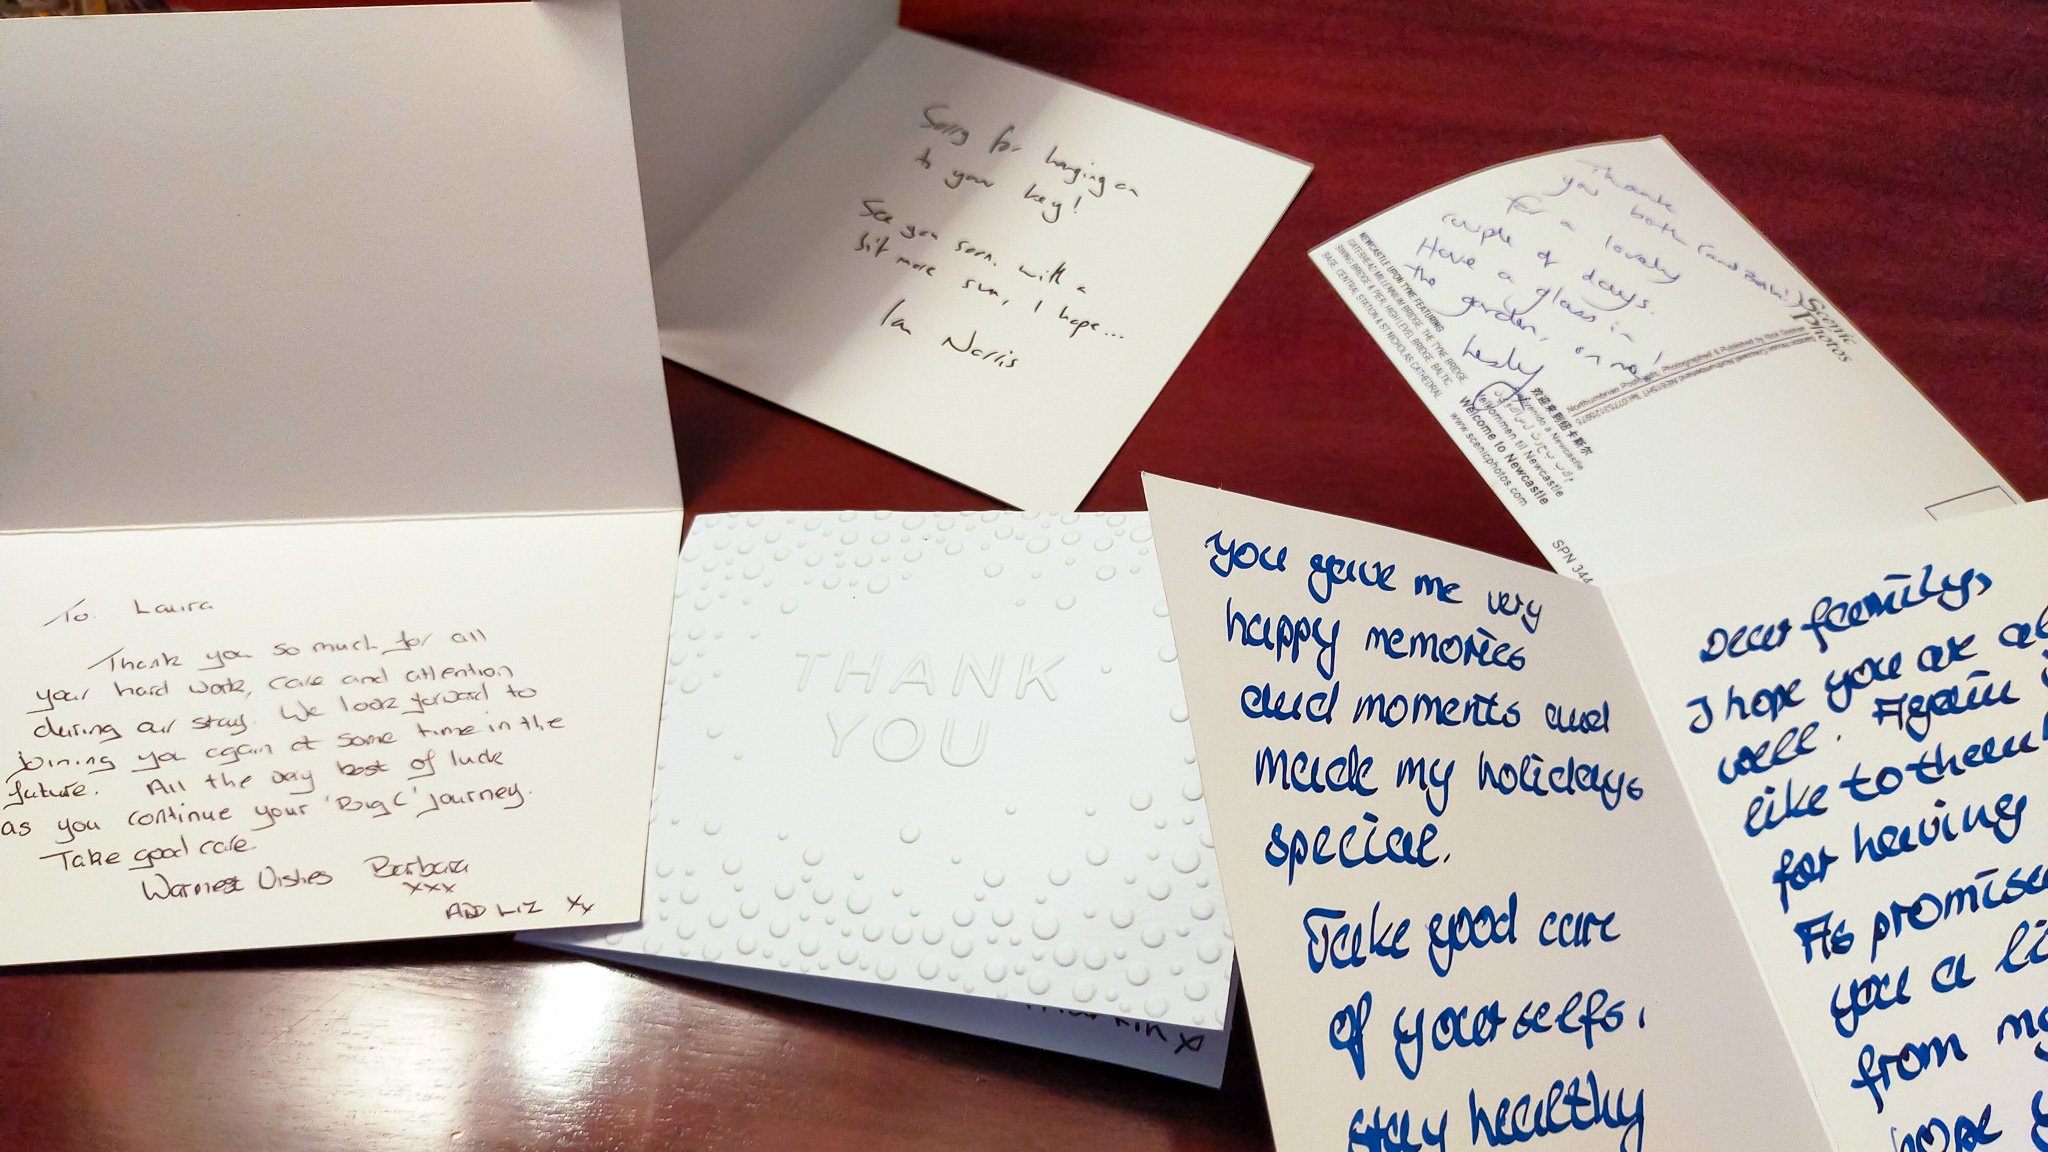 To Laura
Thank you so much for all
your hard work, care and attention
during our stay. We look forward to
joining you again at some time in the
future. All the very best of luck
as you continue your 'Big C' journey.
Take good care.
Warmest Wishes Barbara
xxx
AND LIZ xx
Sorry for hanging on
to your key!
See you soon, with a
bit more sun, I hope...
Ian Norris
Thank
you both
for a lovely
couple of days.
Have a glass in
the garden, or no!
Lesley
NEWCASTLE UPON TYNE FEATURING
GATESHEAD MILLENNIUM BRIDGE, THE TYNE BRIDGE,
SWING BRIDGE & PIER, HIGH LEVEL BRIDGE, BALTIC,
SAGE, CENTRAL STATION & ST NICHOLAS CATHEDRAL
Scenic
Photos
Photographed & Published by
欢迎来到纽卡斯尔
à Newcastle
Velkommen til Newcastle
Welcome to Newcastle
www.scenicphotos.com
SPN 344
THANK
YOU
x
you gave me very
happy memories
and moments and
made my holidays
special.
Take good care
of yourselfs,
stay healthy
Dear family,
I hope you are al
well. Again
like to than
for having
As promise
you a li
from my
hope y